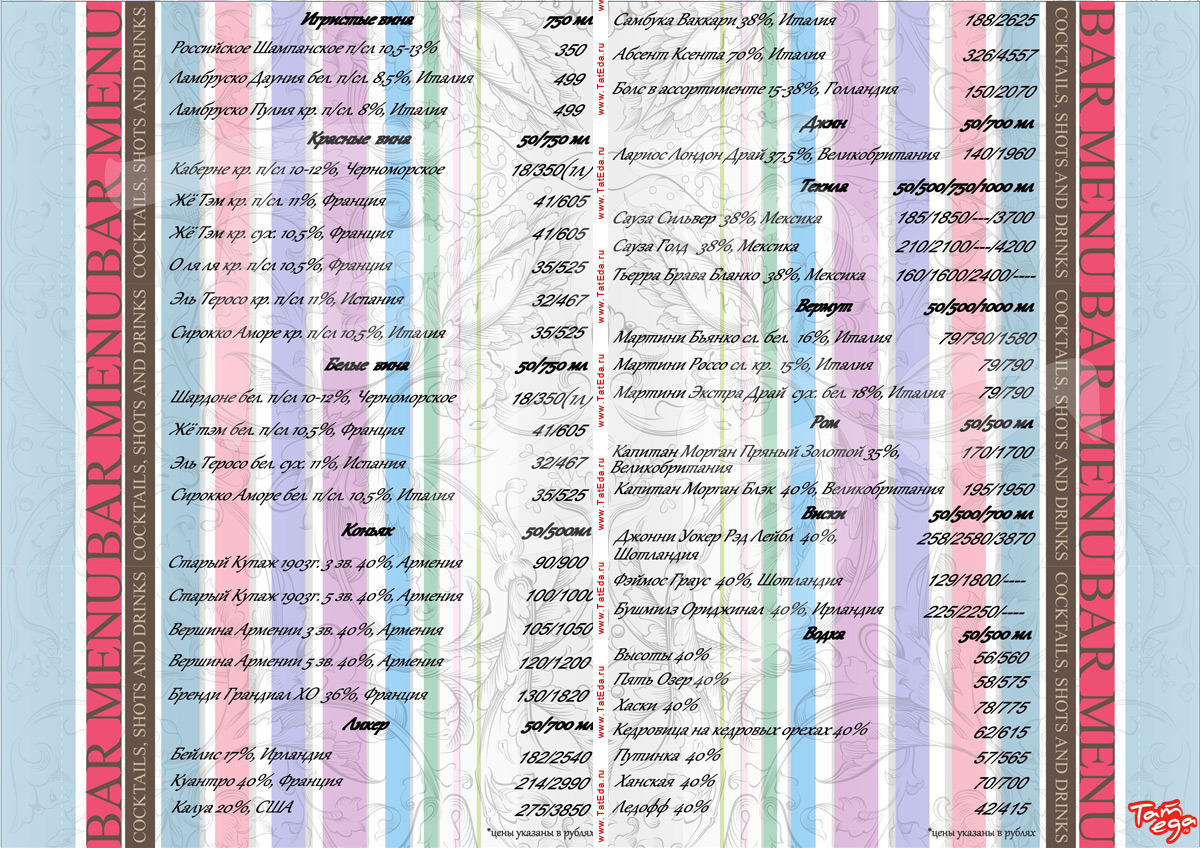 BAR MENUBAR MENUBAR MENUBAR MENU
COCKTAILS, SHOTS AND DRINKS COCKTAILS, SHOTS AND DRINKS COCKTAILS, SHOTS AND DRINKS
Игристые вина 750 мл
Российское Шампанское п/сл 10,5-13% 350
Ламбруско Дауния бел. п/сл. 8,5%, Италия 499
Ламбруско Пулия кр. п/сл. 8%, Италия 499
Красные вина 50/750 мл
Каберне кр. п/сл 10-12%, Черноморское 18/350(1л)
Жё Тэм кр. п/сл. 11%, Франция 41/605
Жё Тэм кр. сух. 10,5%, Франция 41/605
О ля ля кр. п/сл 10,5%, Франция 35/525
Эль Теросо кр. п/сл 11%, Испания 32/467
Сирокко Аморе кр. п/сл 10,5%, Италия 35/525
Белые вина 50/750 мл
Шардоне бел. п/сл 10-12%, Черноморское 18/350(1л)
Жё тэм бел. п/сл 10,5%, Франция 41/605
Эль Теросо бел. сух. 11%, Испания 32/467
Сирокко Аморе бел. п/сл. 10,5%, Италия 35/525
Коньяк 50/500мл
Старый Купаж 1903г. 3 зв. 40%, Армения 90/900
Старый Купаж 1903г. 5 зв. 40%, Армения 100/1000
Вершина Армении 3 зв. 40%, Армения 105/1050
Вершина Армении 5 зв. 40%, Армения 120/1200
Бренди Грандиал ХО 36%, Франция 130/1820
Ликер 50/700 мл
Бейлис 17%, Ирландия 182/2540
Куантро 40%, Франция 214/2990
Калуа 20%, США 275/3850
*цены указаны в рублях
www.TatEda.ru www.TatEda.ru www.TatEda.ru www.TatEda.ru www.TatEda.ru www.TatEda.ru www.TatEda.ru www.TatEda.ru
Самбука Ваккари 38%, Италия 188/2625
Абсент Ксента 70%, Италия 326/4557
Болс в ассортименте 15-38%, Голландия 150/2070
Джин 50/700 мл
Лариос Лондон Драй 37,5%, Великобритания 140/1960
Текила 50/500/750/1000 мл
Сауза Сильвер 38%, Мексика 185/1850/---/3700
Сауза Голд 38%, Мексика 210/2100/---/4200
Тьерра Брава Бланко 38%, Мексика 160/1600/2400/----
Вермут 50/500/1000 мл
Мартини Бьянко сл. бел. 16%, Италия 79/790/1580
Мартини Россо сл. кр. 15%, Италия 79/790
Мартини Экстра Драй сух. бел. 18%, Италия 79/790
Ром 50/500 мл
Капитан Морган Пряный Золотой 35%, 170/1700
Великобритания
Капитан Морган Блэк 40%, Великобритания 195/1950
Виски 50/500/700 мл
Джонни Уокер Рэд Лейбл 40%, 258/2580/3870
Шотландия
Фэймос Граус 40%, Шотландия 129/1800/----
Бушмилз Ориджинал 40%, Ирландия 225/2250/----
Водка 50/500 мл
Высоты 40% 56/560
Пять Озер 40% 58/575
Хаски 40% 78/775
Кедровица на кедровых орехах 40% 62/615
Путинка 40% 57/565
Ханская 40% 70/700
Ледофф 40% 42/415
*цены указаны в рублях
COCKTAILS, SHOTS AND DRINKS COCKTAILS, SHOTS AND DRINKS COCKTAILS, SHOTS AND DRINKS
BAR MENUBAR MENUBAR MENUBAR MENU
Тат
еда